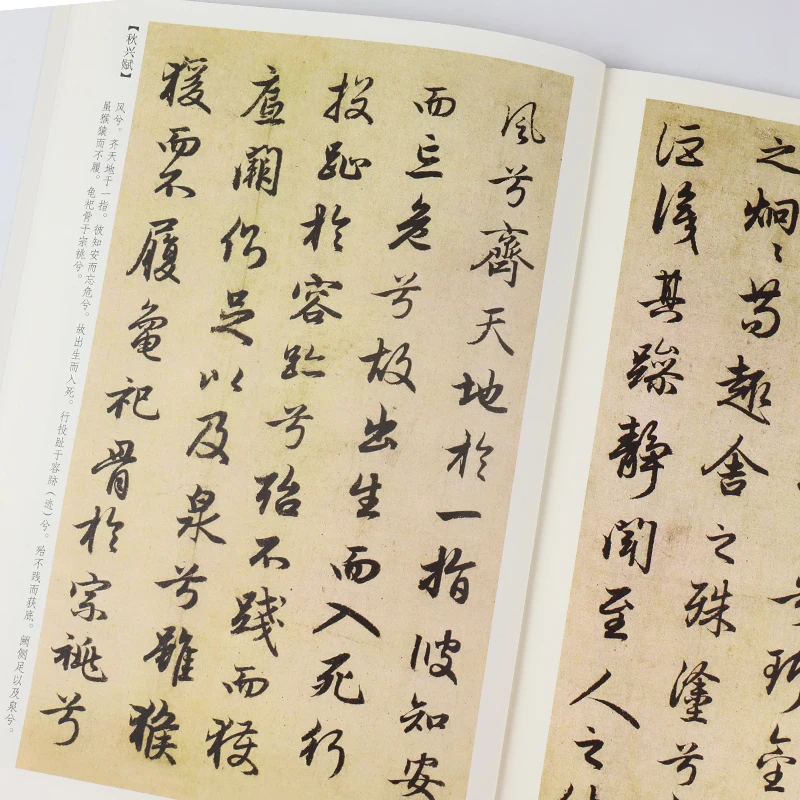 之炯々苟趣舍之殊塗兮
詎識其躁靜聞至人之
風兮齊天地於一指彼知安
而忘危兮故出生而入死行
投趾於容跡兮殆不踐而獲
底闕側足以及泉兮雖猴
猨而不履龜祀骨於宗祧兮
【秋兴赋】
风兮。齐天地于一指。彼知安而忘危兮。故出生而入死。行投趾于容跡（迹）兮。殆不践而获底。阙侧足以及泉兮。
虽猴猿而不履。龟祀骨于宗祧兮。